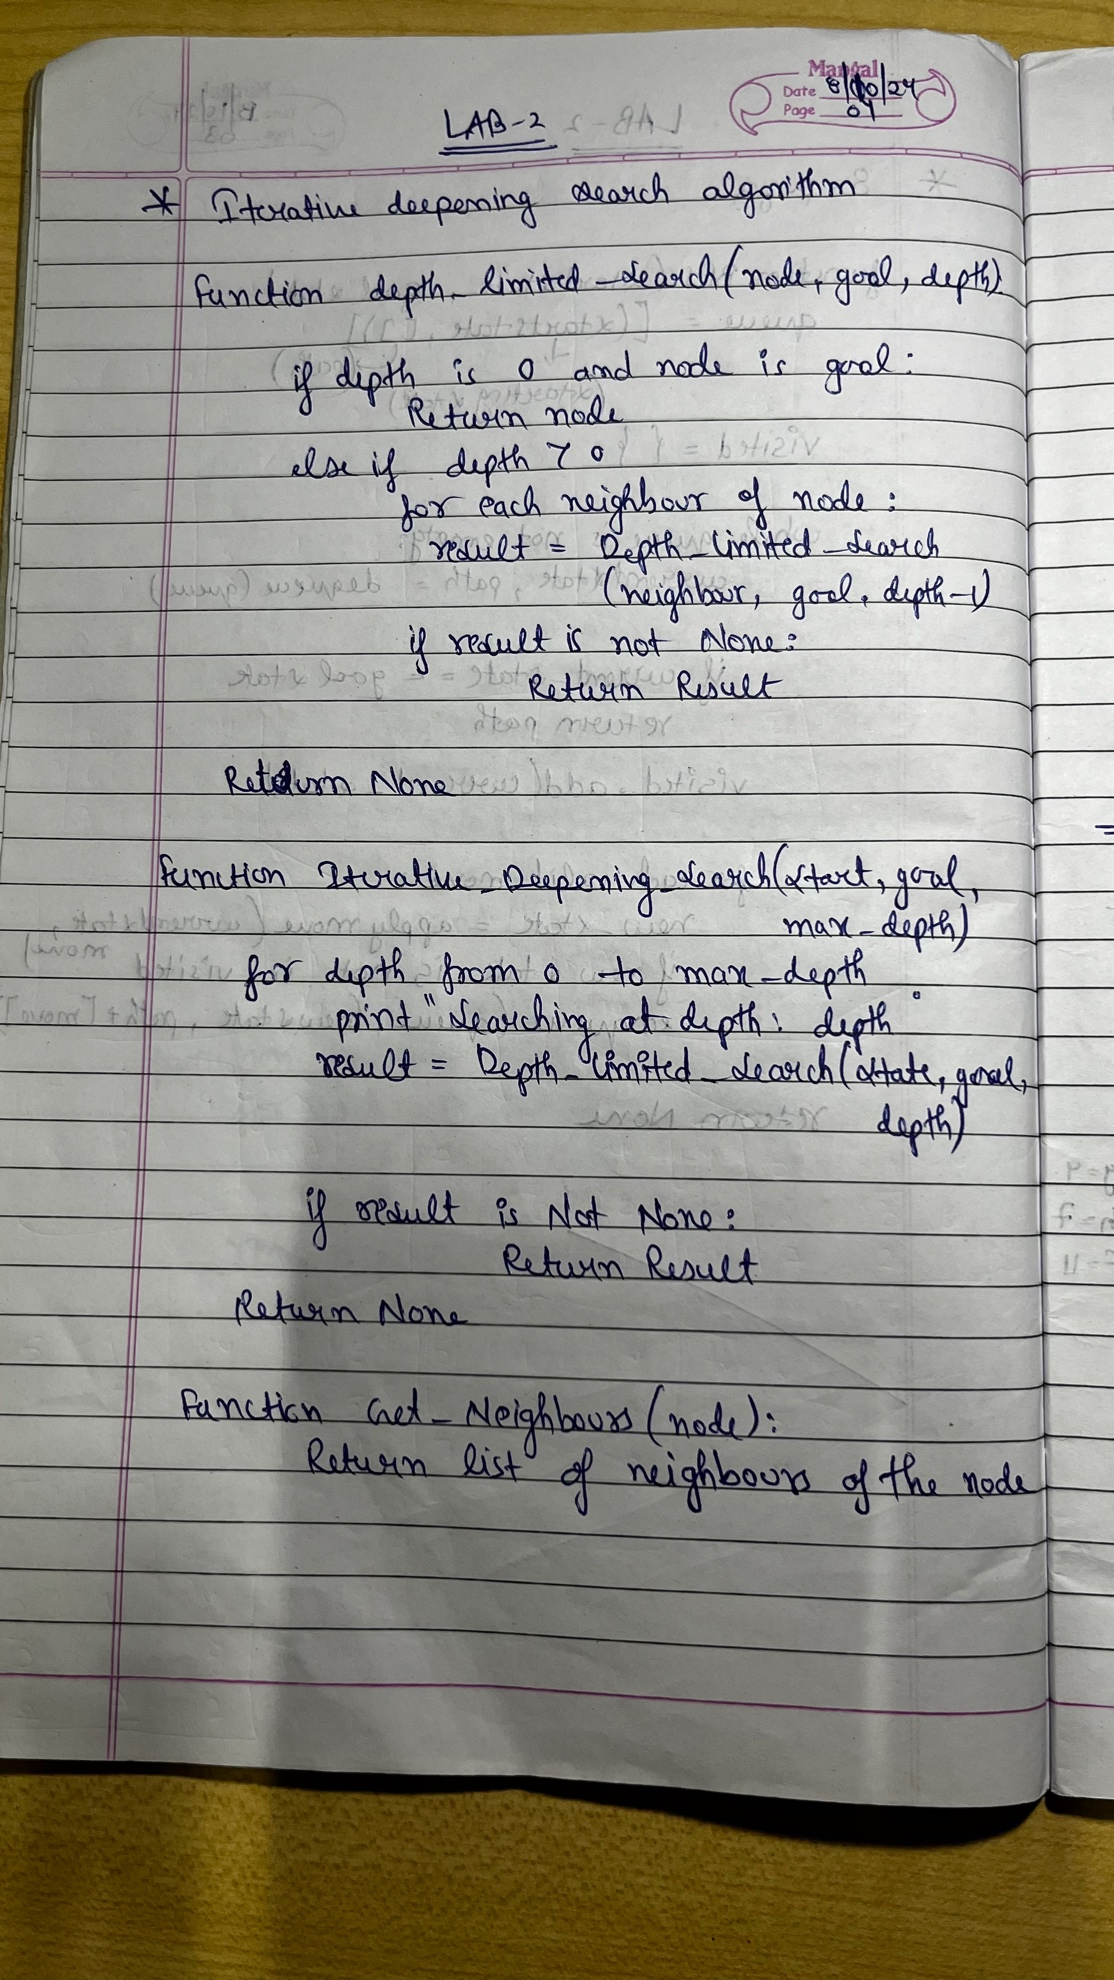 Mangal
Date 8/10/24
Page 01
LAB-2
* Iterative deepening search algorithm
function depth_limited_search(node, goal, depth)
if depth is 0 and node is goal:
Return node
else if depth > 0
for each neighbour of node:
result = Depth_limited_search
(neighbour, goal, depth-1)
if result is not None:
Return Result
Return None
function Iterative_Deepening_search(start, goal,
max_depth)
for depth from 0 to max_depth
print "searching at depth: depth"
result = Depth_limited_search(state, goal,
depth)
if result is Not None:
Return Result
Return None
Function Get_Neighbours(node):
Return list of neighbours of the node